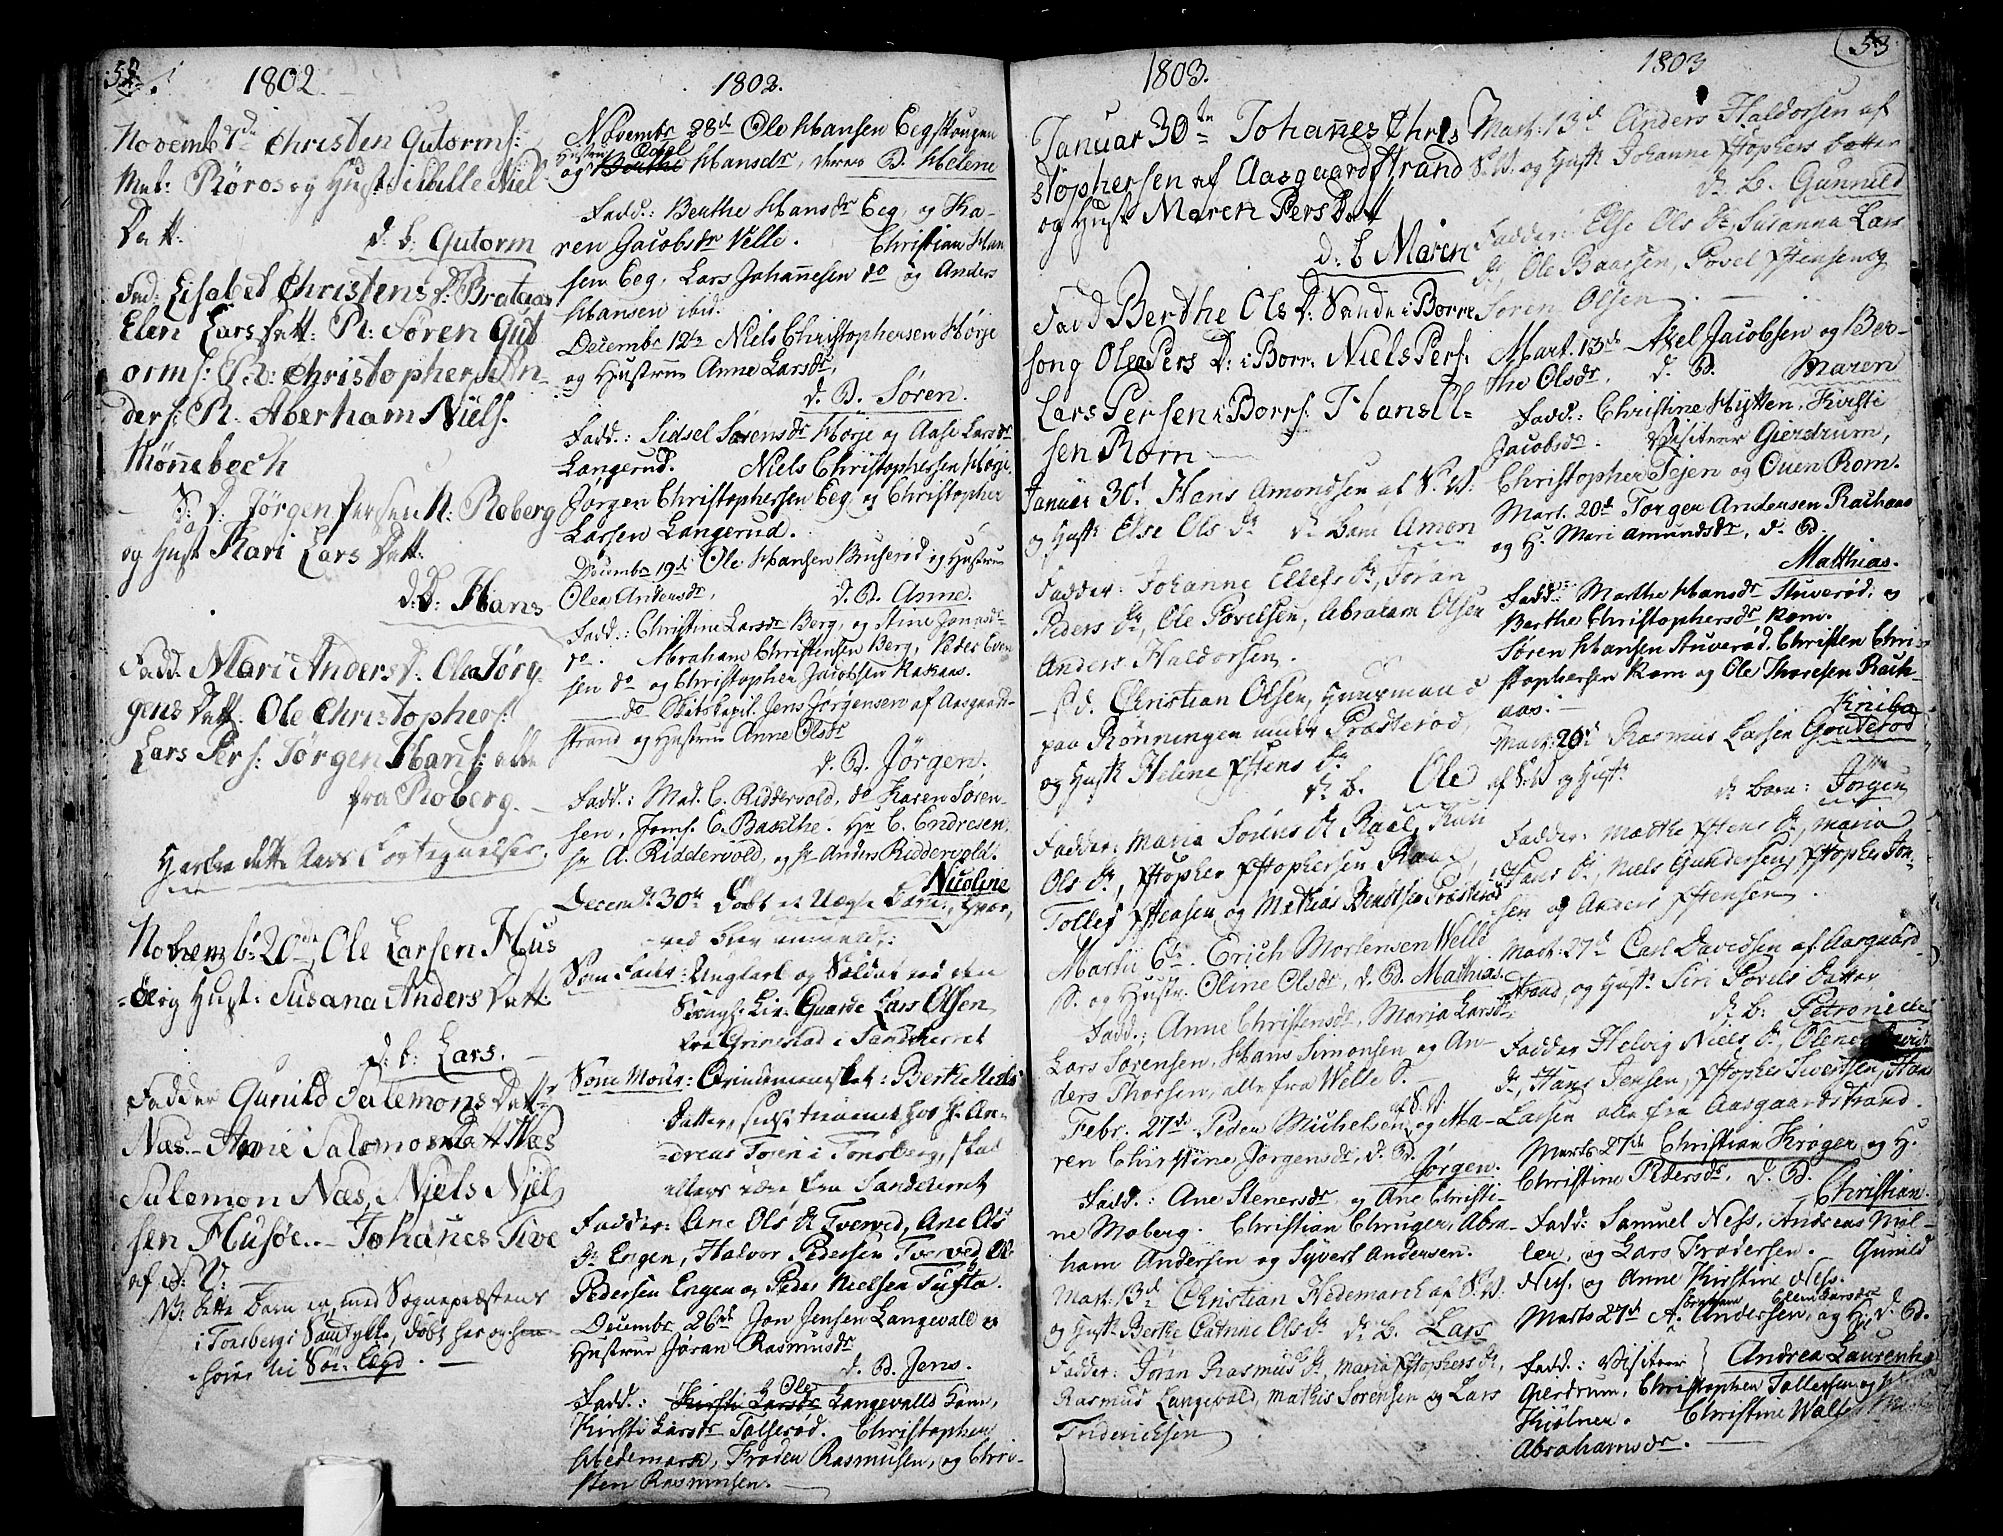 52.
1802
Novemb 7de Christen Gutorms:
Mat: Röros og Hust: Sibille Niels
Datt:
d: b: Gutorm
Fad: Lisabet Christens D: Brataas
Elen Lars Datt: R: Søren Gut
orms: R: Christopher An-
ders: R. Aberham Niels.
Mönnebech
S: D: Jørgen Persen N: Roberg
og Hust Kari Lars Datt:
d: b: Hans
Fadd: Mari Anders D: Olea Jörg
gens Datt. Ole Christophers:
Lars Pers: Jørgen Hans: alle
fra Roberg.
Her fra dette Aars Fortegnelse.
Novemb: 20de Ole Larsen Hus
öe og Hust: Susana Anders Datt:
d: b: Lars.
Fadder Gunild Salemons Datt
Næs - Anne Salomons Datt Næs
Salomon Næs, Niels Niel
sen Husöe. - Johanes Tive
af S: V:
NB: dette Barn er med Sognepræstens
i Tonsbergs Samtykke, døbt her og hen
hører til Söe: Lagd.
1802.
Novembr 28d Ole Hansen Eeg Skougen
og Hustrue Aasel Hansdr, deres B. Helene
Fadd.: Berthe Hansdr Eeg, og Ka-
ren Jacobsdr Velle. Christian Han
sen Eeg, Lars Johannesen do og Anders
Hansen ibid.
Decembr 12te Niels Christophersen Horje
og Hustrue Anne Larsdr,
d. B. Søren.
Fadd.: Sidsel Sørensdr Horje og Aase Larsdr
Langerud. Niels Christophersen Horje,
Jørgen Christophersen Eeg og Christopher
Larsen Langerud.
Decembr 19de Ole Hansen Bruserød og Hustrue
Olea Andersdr, d. B. Anne.
Fadd.: Christine Larsdr Berg, og Stine Jonasdr
do. Abraham Christensen Berg, Peder Even
sen do og Christopher Jacobsen Rakaas.
do Skibskapt. Jens Jørgensen af Aasgaard-
strand og Hustrue Anne Olsdr
d. B. Jørgen.
Fadd.: Mad. C. Riddervold, do Karen Sören-
sen, Jomf. C. Basethe. Hr C. Endresen
Hr A. Riddervold, og Hr Anders Riddervold.
Decembr 30te Döbt et Uægte Barn: Nicoline
ved blev anmeldt:
Som Fader: Ungkarl og Soldat ved den
Kongl: Liv: Guarde Lars Olsen
fra Grimstad i Sandeherret
Som Moder: Qvindemennesket: Berthe Niels
Datter, sidst tienende hos Hr An-
dreas Foren i Tonsberg, skal
ellers være fra Sandeherret
Fadder: Ane Ols Dr Tverved, Ane Ols
Dr Engen, Halvor Pedersen Tverved, Ole
Pedersen Engen og Peder Nielsen Tufta.
Decembr 26de Jon Jensen Langevald og
Hustrue Jøran Rasmusdr
d. B. Jens.
Fadd.: Ole Langevalds Kone,
Kirsti Larsdr Tolserød. Christopher
Hedemark, Froder Rasmusen, og Chri-
sten Rasmusen.
1803.
Januar 30te Johannes Chris
stophersen af Aasgaardstrand
og Hust: Maren Pers Datt
d: b Maren
Fadd Berthe Ols D: Sande i Borre
song Olea Pers D: i Borr: Niels Pers:
Lars Persen i Borrs: Hans Ol-
sen Rorn
Januar 30t Hans Amondsen af S: V:
og Hustr Else Ols Dr dr Barn Amon
Fadder: Johanne Ellefs Dr, Jöran
Peders Dr, Ole Povelsen, Abraham Olsen
Anders Haldorsen.
S. d. Christian Olsen, Huusmand
paa Rönningen under Præsteröd,
og Hustr Helene Pstens Dr
dr b. Ole
Fadder: Maria Sörens Dr Raal, Kari
Ols Dr, Pstopher Pstophersen Raae,
Tollef Pstensen og Mathias Bendtsen Præsteröd
Martii 6te. Erich Mortensen Welle
S. og Hustr. Oline Olsdr, d. B. Mathias.
Fadd.; Anne Christensdr, Maria Larsdr
Lars Sørensen, Hans Simonsen og An-
ders Thorsen, alle fra Welle S.
Febr. 27de Peder Michelsen af S. V. og Ma-
ren Christine Jørgensdr, d. B.
Jørgen.
Fadd.: Ane Stenersdr, og Ane Christi-
ne Moberg. Christian Chruger, Abra-
ham Andersen og Syvert Andersen.
Mart: 13d Christian Hedemarck af S: V:
og Hustr Berthe Catrine Ols Dr dr b. Lars
Fadder: Jöran Rasmus Dr, Maria Pstophers Dr,
Rasmus Langevald, Mathis Sörensen og Lars
Fridericksen
53
1803
Mart. 13d Anders Haldorsen af
S: V. og Hustr Johanne Pstophers Datter
dr b. Gunnild
Fadder: Else Ols Dr, Susanna Lars
Dr, Ole Baarsen, Povel Pstensen og
Sören Olsen
Mart. 13de Axel Jacobsen og Ber-
the Olsdr, d. B. Maren
Fadd.: Christine Hytten, Kirsti
Jacobsdr. Visiteur Gierdrum,
Christopher Tejen og Ouen Rom.
Mart. 20d Jørgen Andersen Rachaas
og H. Mari Amundsdr, d. B.
Matthias.
Fadd: Marthe Hansdr Stuverød, og
Berthe Christophersdr Rom.
Søren Hansen Stuverød, Christen Chri-
stophersen Rom og Ole Thoresen Rach-
aas.
Mart: 20d Rasmus Larsen Gouteröd
af S: V og Hustr
dr Barn: Jörgen
Fadder: Marthe Pstens Dr, Maria
Hans Dr, Niels Gundersen, Pstopher Jon-
sen og Anders Pstensen.
Mart: 27d Carl Davidsen af Aasgaard-
strand, og Hustr Siri Povels Datter
dr b: Petronille
Fadder Helvig Niels Dr, Olene
Dr, Hans Jensen, Pstopher Sivertsen, Hans
Larsen alle fra Aasgaardstrand.
Marts 27de Christian Krøger og H.
Christine Pedersdr, d. B.
Christian.
Fadd: Samuel Ness, Andreas Møl-
ler, og Lars Frodersen. Gunild
Ness. og Anne Kirstine Ness.
Marts 27de Abraham Andersen, og H. Elen Larsdr d. B.
Andrea Laurentia
Fadd.: Visiteur
Gierdrum, Christopher Tollersen og
Kiölner. Christine Walle,
Abrahamsdr.